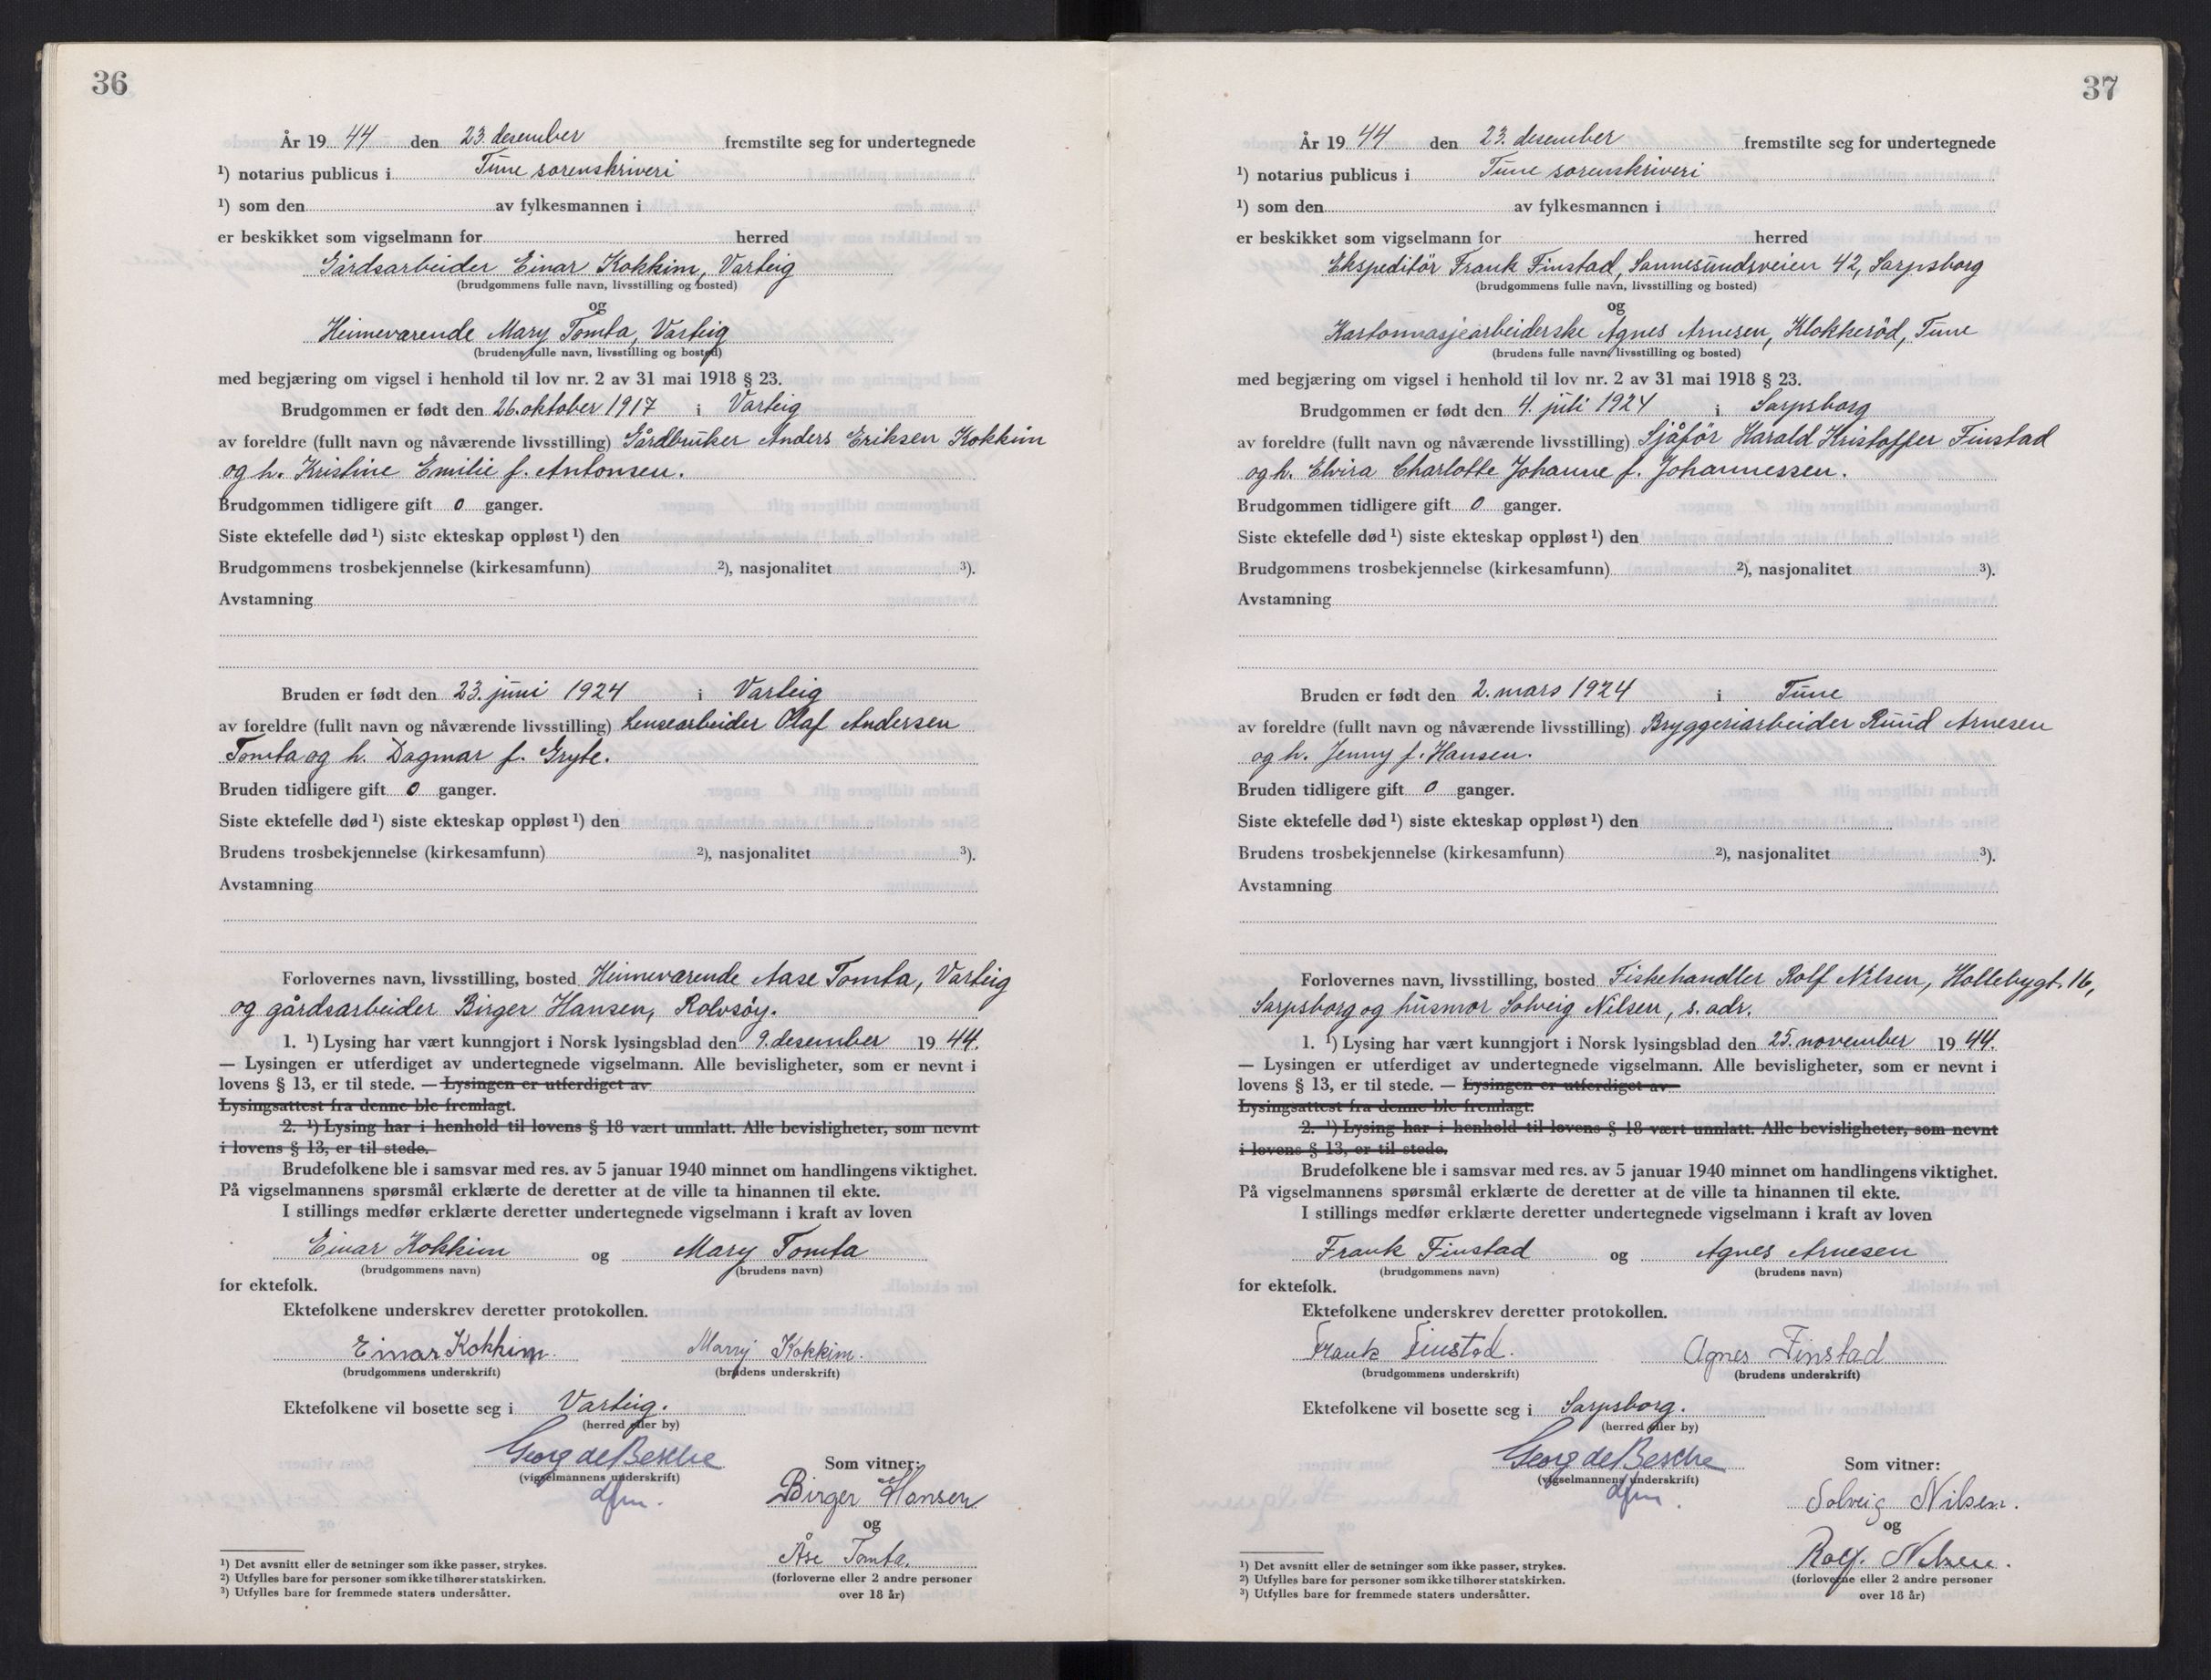 36
År 1944 den 23. desember fremstilte seg for undertegnede
¹) notarius publicus i Tune sorenskriveri
¹) som den av fylkesmannen i
er beskikket som vigselmann for herred
Gårdsarbeider Einar Kokkim, Varteig
(brudgommens fulle navn, livsstilling og bosted)
og
Heimeværende Mary Tomta, Varteig
(brudens fulle navn, livsstilling og bosted)
med begjæring om vigsel i henhold til lov nr. 2 av 31 mai 1918 § 23.
Brudgommen er født den 26. oktober 1917 i Varteig
av foreldre (fullt navn og nåværende livsstilling) Gårdbruker Anders Eriksen Kokkim
og h. Kristine Emilie f. Antonsen.
Brudgommen tidligere gift 0 ganger.
Siste ektefelle død ¹) siste ekteskap oppløst ¹) den
Brudgommens trosbekjennelse (kirkesamfunn) ²), nasjonalitet ³).
Avstamning
Bruden er født den 23. juni 1924 i Varteig
av foreldre (fullt navn og nåværende livsstilling) Lensearbeider Olaf Andersen
Tomta og h. Dagmar f. Gryte.
Bruden tidligere gift 0 ganger.
Siste ektefelle død ¹) siste ekteskap oppløst ¹) den
Brudens trosbekjennelse (kirkesamfunn) ²), nasjonalitet ³).
Avstamning
Forlovernes navn, livsstilling, bosted Heimeværende Aase Tomta, Varteig
og gårdsarbeider Birger Hansen, Rolvsöy.
1. ¹) Lysing har vært kunngjort i Norsk lysingsblad den 9. desember 1944.
— Lysingen er utferdiget av undertegnede vigselmann. Alle bevisligheter, som er nevnt i
lovens § 13, er til stede. — Lysingen er utferdiget av
Lysingsattest fra denne ble fremlagt.
2. ¹) Lysing har i henhold til lovens § 18 vært unnlatt. Alle bevisligheter, som nevnt
i lovens § 13, er til stede.
Brudefolkene ble i samsvar med res. av 5 januar 1940 minnet om handlingens viktighet.
På vigselmannens spørsmål erklærte de deretter at de ville ta hinannen til ekte.
I stillings medfør erklærte deretter undertegnede vigselmann i kraft av loven
Einar Kokkim og Mary Tomta
(brudgommens navn) (brudens navn)
for ektefolk.
Ektefolkene underskrev deretter protokollen.
Einar Kokkim. Marry Kokkim.
(brudgommens underskrift) (brudens underskrift)
Ektefolkene vil bosette seg i Varteig.
(herred eller by)
Georg de Besche Som vitner:
(vigselmannens underskrift)
dfm. Birger Hansen
og
Åse Tomta.
(forloverne eller 2 andre personer
over 18 år)
¹) Det avsnitt eller de setninger som ikke passer, strykes.
²) Utfylles bare for personer som ikke tilhører statskirken.
³) Utfylles bare for fremmede staters undersåtter.
37
År 1944 den 23. desember fremstilte seg for undertegnede
¹) notarius publicus i Tune sorenskriveri
¹) som den av fylkesmannen i
er beskikket som vigselmann for herred
Ekspeditör Frank Finstad, Sannesundsveien 42, Sarpsborg
(brudgommens fulle navn, livsstilling og bosted)
og
Kartonnasjearbeiderske Agnes Arnesen, Klokkeröd, Tune
(brudens fulle navn, livsstilling og bosted)
med begjæring om vigsel i henhold til lov nr. 2 av 31 mai 1918 § 23.
Brudgommen er født den 4. juli 1924 i Sarpsborg
av foreldre (fullt navn og nåværende livsstilling) Sjåför Harald Kristoffer Finstad
og h. Elvira Charlotte Johanne f. Johannessen.
Brudgommen tidligere gift 0 ganger.
Siste ektefelle død ¹) siste ekteskap oppløst ¹) den
Brudgommens trosbekjennelse (kirkesamfunn) ²), nasjonalitet ³).
Avstamning
Bruden er født den 2. mars 1924 i Tune
av foreldre (fullt navn og nåværende livsstilling) Bryggeriarbeider Ruud Arnesen
og h. Jenny f. Hansen.
Bruden tidligere gift 0 ganger.
Siste ektefelle død ¹) siste ekteskap oppløst ¹) den
Brudens trosbekjennelse (kirkesamfunn) ²), nasjonalitet ³).
Avstamning
Forlovernes navn, livsstilling, bosted Fiskehandler Rolf Nilsen, Hollebygt. 16,
Sarpsborg og husmor Solveig Nilsen, s. adr.
1. ¹) Lysing har vært kunngjort i Norsk lysingsblad den 25. november 1944.
— Lysingen er utferdiget av undertegnede vigselmann. Alle bevisligheter, som er nevnt i
lovens § 13, er til stede. — Lysingen er utferdiget av
Lysingsattest fra denne ble fremlagt.
2. ¹) Lysing har i henhold til lovens § 18 vært unnlatt. Alle bevisligheter, som nevnt
i lovens § 13, er til stede.
Brudefolkene ble i samsvar med res. av 5 januar 1940 minnet om handlingens viktighet.
På vigselmannens spørsmål erklærte de deretter at de ville ta hinannen til ekte.
I stillings medfør erklærte deretter undertegnede vigselmann i kraft av loven
Frank Finstad og Agnes Arnesen
(brudgommens navn) (brudens navn)
for ektefolk.
Ektefolkene underskrev deretter protokollen.
Frank Finstad. Agnes Finstad
(brudgommens underskrift) (brudens underskrift)
Ektefolkene vil bosette seg i Sarpsborg.
(herred eller by)
Georg de Besche Som vitner:
(vigselmannens underskrift)
dfm. Solveig Nilsen.
og
Rolf. Nilsen.
(forloverne eller 2 andre personer
over 18 år)
¹) Det avsnitt eller de setninger som ikke passer, strykes.
²) Utfylles bare for personer som ikke tilhører statskirken.
³) Utfylles bare for fremmede staters undersåtter.